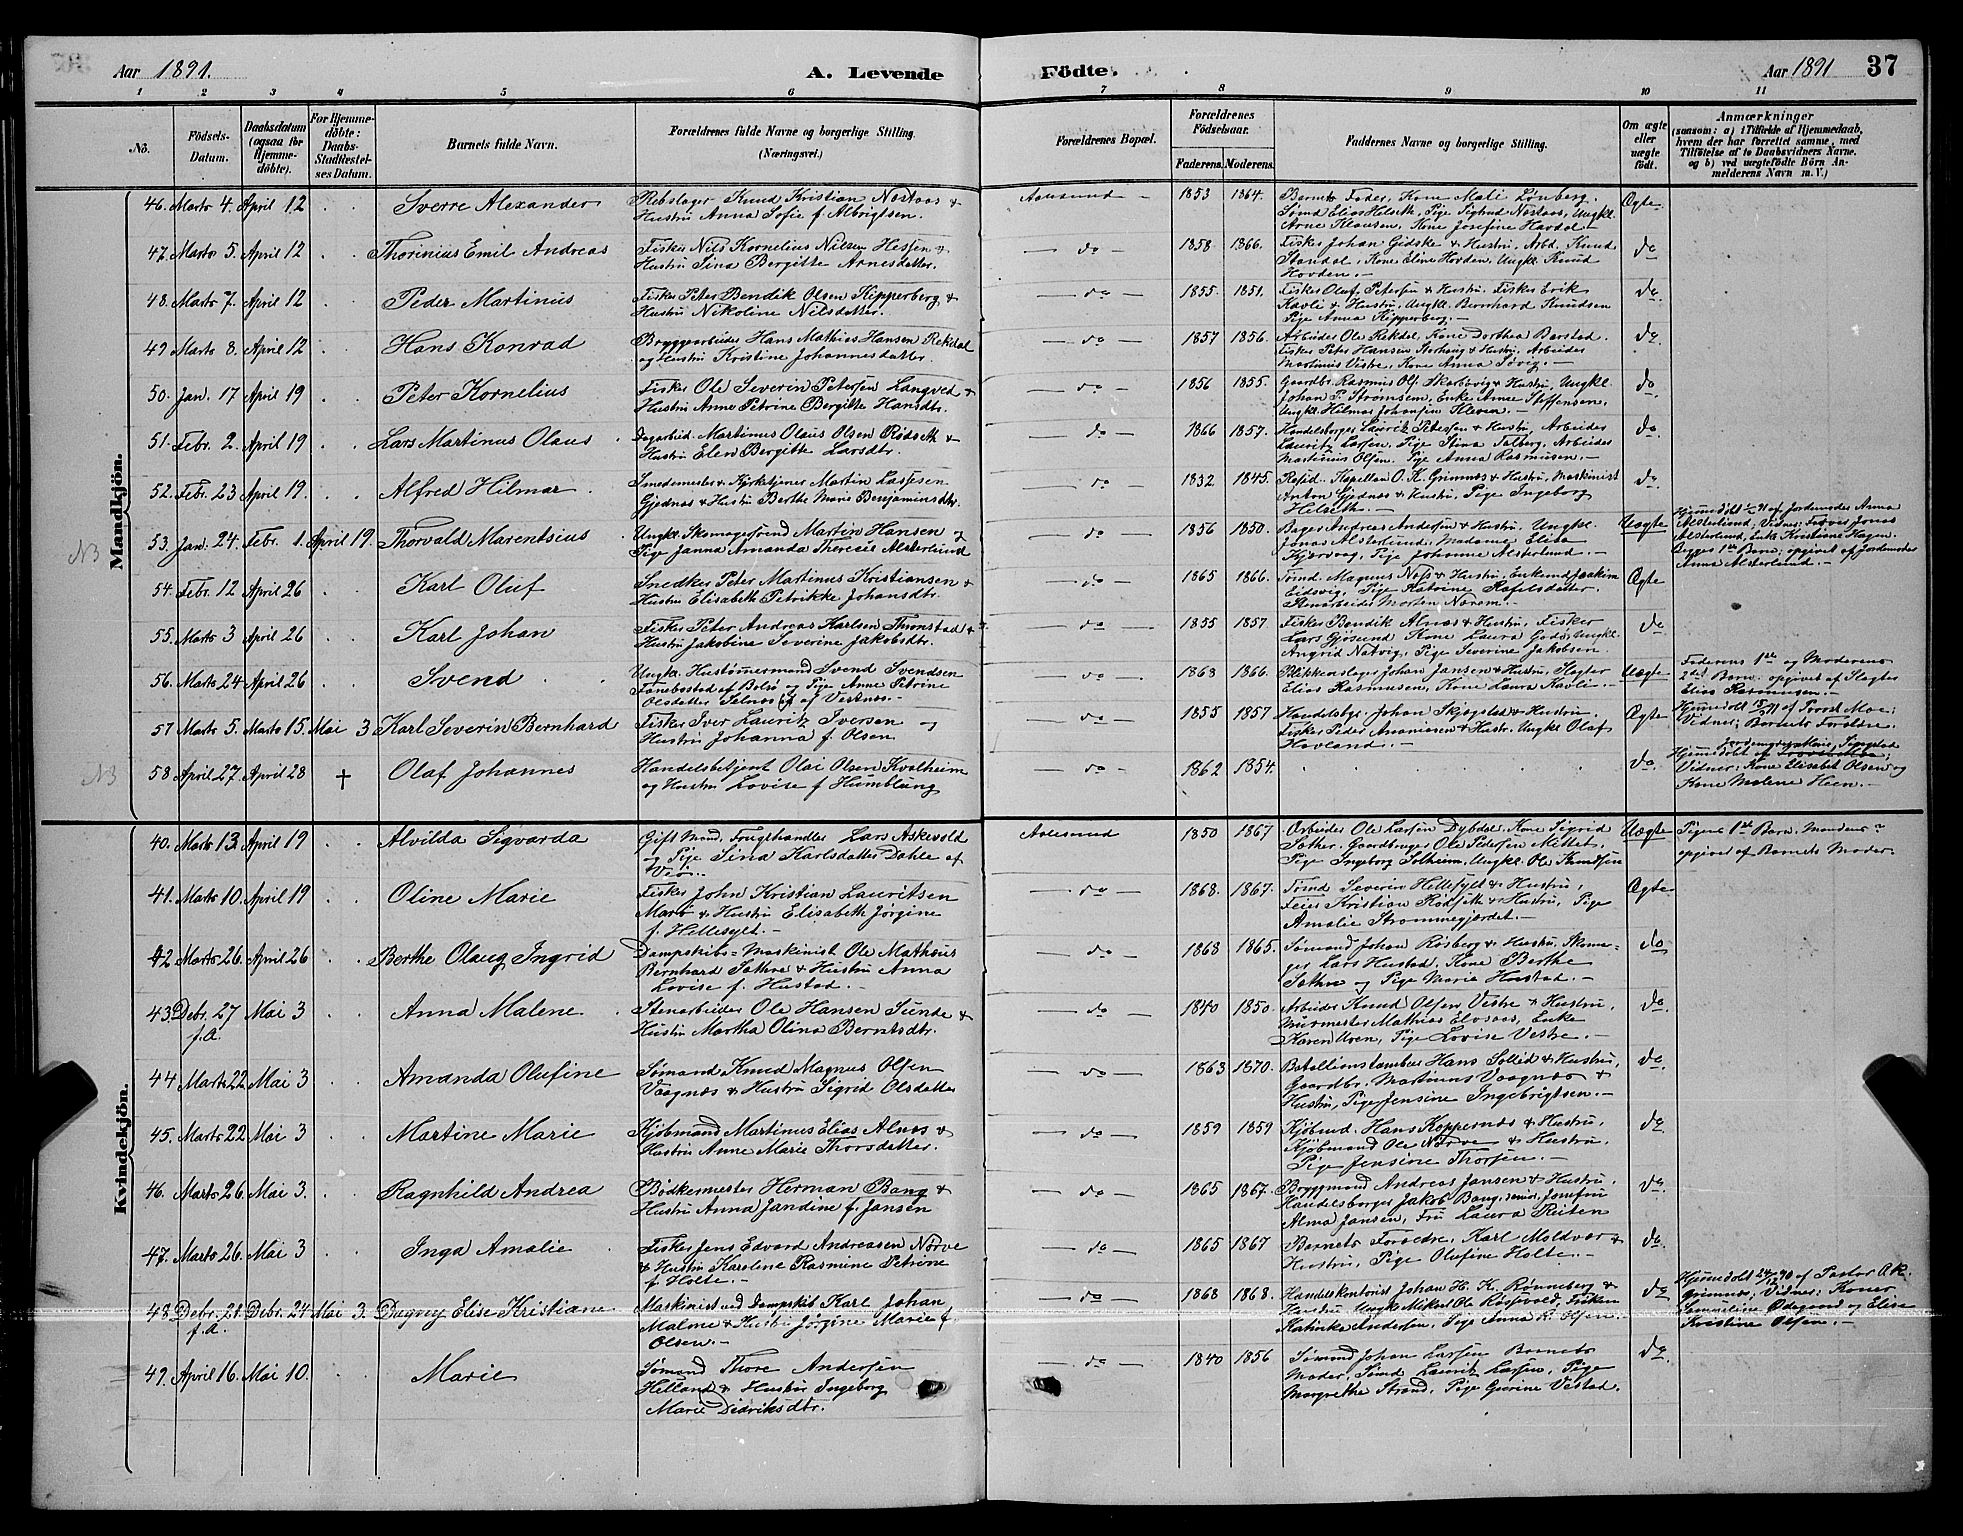 Aar 1891. A. Levende Födte. Aar 1891 37
1 2 3 4 5 6 7 8 9 10 11
No.
Födsels-Datum.
Daabsdatum (ogsaa for Hjemme-döbte).
For Hjemme-döbte: Daabs-Stadfæstel-ses Datum.
Barnets fulde Navn.
Forældrenes fulde Navne og borgerlige Stilling.
(Næringsvei.)
Forældrenes Bopæl.
Forældrenes Födselsaar.
Faderens. Moderens.
Faddernes Navne og borgerlige Stilling.
Om ægte eller uægte födt.
Anmærkninger
(saasom: a) i Tilfælde af Hjemmedaab,
hvem der har forrettet samme, med
Tilföielse af to Daabsvidners Navne,
og b) ved uægtefödte Börn An-
melderens Navn m. V.)
Mandkjön.
46. Marts 4. April 12 Sverre Alexander
Rebslager Knud Kristian Nostoos &
Hustru Anna Sofie f. Albrigtsen.
Aalesund 1853 1864.
Barnets Fader, Kone Mali Lønberg.
Sømd Elias Helseth, Pige Sigtrud Nostoos, Ungkl.
Arne Klausen, Kone Josefine Havdal
Ægte
47. Marts 5. April 12 Thorinius Emil Andreas
Fisker Nils Kornelius Nilsen Hessen &
Hustru Sina Bergitte Arnesdatter.
do 1858. 1866.
Fisker Johan Gidske & Hustru, Arbd. Knud
Standal, Kone Eline Hovden, Ungkl. Knud
Hovden.
do
48. Marts 7. April 12 Peder Martinus
Fisker Peter Bendik Olsen Kipperberg &
Hustru Nikoline Nilsdatter.
do 1855. 1851.
Fisker Oluf Petersen & Hustru, Fisker Erik
Kavli & Hustru, Ungkl. Bernhard Knudsen
Pige Anna Kipperberg.
do
49 Marts 8. April 12 Hans Konrad
Bryggearbeider Hans Mathias Hansen Rekdal
og Hustru Kristine Johannesdatter.
do 1857 1856.
Arbeider Ole Rekdal, Kone Dorthea Barstad.
Fisker Peter Hansen Storheug & Hustru, Arbeider
Martinus Vestre, Kone Anna Søvig.
do
50. Jan. 17 April 19 Peter Kornelius
Fisker Ole Severin Petersen Langved &
Hustru Anne Petrine Bergitte Hansdtr.
do 1856 1855.
Gaardbr. Rasmus Ols. Skarbøvig & Hustru, Ungkl.
Johan P. Strømsen, Enke Anne Steffensen,
Ungkl. Hilmar Johansen Kleven.
do
51. Febr. 2. April 19. Lars Martinus Olaus
Dagarbeid. Martinus Olaus Olsen Rødseth &
Hustru Elen Bergitte Larsdtr.
do 1866 1857.
Handelsborger Laurits Petersen & Hustru, Arbeider
Lauritz Larsen, Pige Stina Solberg, Arbeider
Martinius Olsen. Pige Anna Rasmusen.
do
52. Febr. 23 April 19. Alfred Hilmar
Smedemester & Kirketjener Martin Larssen
Gjednæs & Hustru Berthe Marie Benjaminsdtr.
do 1832 1845.
Resid. Kapellan O. K. Grimnæs & Hustru, Maskinist
Anton Gjednæs & Hustru, Pige Ingeborg
Helseth.
do
NB
53. Jan. 24. Febr. 1. April 19. Thorvald Marentsius
Ungkl. Skomagersvend Martin Hansen og
Pige Janna Amanda Therese Alsterlund
do 1856 1850.
Bager Andreas Andersen & Hustru, Ungkl.
Jonas Alsterlund, Madame Elisa
Kjervaag, Pige Johanne Alsterlund.
Uægte
Hjemmedøbt 1/2 91 af Jordemoder Anna
Alsterlund; Vidner: Farver Jonas
Alsterlund, Enke Kristiane Hagen.
Begges 1ste Barn; opgivet af Jordemoder
Anna Alsterlund.
54. Febr. 12 April 26 Karl Oluf
Snedker Peter Martinus Kristiansen &
Hustru Elisabeth Petrikke Johansdtr.
do 1865 1866.
Tømd. Magnus Næss & Hustru, Enkemd. Joakim
Eidsvig, Pige Katrine Rafelsdatter,
Stenarbeider Morten Norem.
Ægte
55. Marts 3 April 26 Karl Johan
Fisker Peter Andreas Karlsen Thronstad &
Hustru Jakobine Severine Jakobsdtr.
do 1855 1857
Fisker Bendik Alnæs & Hustru, Fisker
Lars Gjøsund, Kone Laura Godø, Ungkl.
Angrid Natvig, Pige Severine Jakobsen
do
56. Marts 24 April 26 Svend
Ungkl. Hustømmermand Svend Svendsen
Tønebostad af Bolsø og Pige Anne Petrine
Olsdatter Selnæs af Vestnæs.
do 1868 1866.
Blikkenslager Johan Jansen & Hustru, Slagter
Elias Rasmussen, Kone Laura Kavli.
Uægte
Faderens 1ste og Moderens
2det Barn. opgivet af Slagter
Elias Rasmussen.
57 Marts 5. Marts 15. Mai 3 Karl Severin Bernhard
Fisker Iver Lauritz Iversen og
Hustru Johanna f. Olsen
do 1855 1857
Handelsbgr. Johan Skjegstad & Hustru.
Fisker Peder Ananiasen & Hustr. Ungkl. Olaf
Hovland.
Ægte
Hjemmedøbt 15/3 91 af Provst Moe;
Vidner; Barnets Forældre.
NB
58 April 27. April 28 + Olaf Johannes
Handelsbetjent Olai Olsen Kvalheim
og Hustru Lovise f. Humblung
do 1862 1854.
do.
Hjemmedøbt af
Vidner: Kone Elisabet Olsen og
Kone Malene Heen.
Kvindekjön.
40. Marts 13. April 19 Alvilda Sigvarda
Gift Mand, Frugthandler Lars Askevold
og Pige Sina Karlsdatter Dahle af
Vio.
Aalesund 1850 1867
Arbeider Ole Larsen Dybdal, Kone Sigrid
Sæther, Gaardbruger Ole Pedersen Mittet,
Pige Ingeborg Solheim, Ungkl. Ole Knudsen
Uægte
Pigens 1ste Barn. Mandens ?
opgivet af Barnets Moder.
41. Marts 10. April 19 Oline Marie
Fisker John Kristian Lauritsen
Marø & Hustru Elisabeth Jørgine
f. Hellesylt.
do 1868. 1867.
Tømd Severin Hellesylt & Hustru,
Feier Kristian Rødseth & Hustru, Pige
Amalie Strommegjerdet.
Ægte
42 Marts 26. April 26 Berthe Olaug Ingrid
Dampskibs-Maskinist Ole Mathæus
Bernhard Sæthre & Hustru Anna
Lovise f. Hustad.
do 1868 1865.
Sømand Johan Røsberg & Hustru, Skoma-
ger Lars Hustad, Kone Berthe
Sæthre og Pige Marie Hustad.
do
43. Debr. 27 f.A. Mai 3 Anna Malene
Stenarbeider Ole Hansen Sunde &
Hustru Martha Olina Berntsdtr.
do 1840 1850.
Arbeider Knud Olsen Vestre & Hustru,
Murmester Mathias Elvsaas, Enke
Karen Uren, Pige Lovise Vestre.
do
44 Marts 22 Mai 3 Amanda Olufine
Sømand Knud Magnus Olsen
Vaagnæs & Hustru Sigrid Olsdatter
do 1863 1870.
Bataillonstambur Hans Sollid & Hustru,
Gaardbr. Martinus Vaagnæs &
Hustru, Pige Jensine Ingebrigtsen.
do
45. Marts 22 Mai 3 Martine Marie
Kjøbmand Martinus Elias Alnæs &
Hustru Anne Marie Thorsdatter.
do 1859 1859
Kjøbmd. Hans Koppernæs & Hustru,
Kjøbmand Ole Nørve & Hustru,
Pige Jensine Thorsen.
do
46. Marts 26 Mai 3. Ragnhild Andrea
Bødkermester Herman Bang &
Hustru Anna Jandine f. Jansen
do 1865 1867.
Byggmand Andreas Jansen & Hustru,
Handelsborger Jakob Bang, senior, Jomfru
Alma Jansen, Fru Laura Reiten
do
47. Marts 26. Mai 3 Inga Amalie
Fisker Jens Edvard Andreasen Nørve
& Hustru Karoline Rasmine Petrine
f. Holte.
do 1865 1867
Barnets Forældre, Karl Moldvær &
Hustru, Pige Olufine Holte.
do.
48. Debr. 21. f.A. Debr. 24 Mai 3. Dagny Elise Kristiane
Maskinist ved Dampskib Karl Johan
Malme & Hustru Jørgine Marie f.
Olsen.
do 1868 1868.
Handelskontorist Johan H. K. Rønneberg &
Hustru Ungkl. Mikael Ole Røsvold, Frøken
Katinka Andersen, Pige Anna K. Olsen.
do
Hjemmedøbt 24/12 90 af Pastor O.K.
Grimnæs; Vidner: Koner
Sammeline Ødegaard og Elise
Kristine Olsen.
49. April 16. Mai 10. Marie
Sømand Thore Andersen
Helland & Hustru Ingeborg
Marie Didriksdtr.
do 1840 1856
Sømand Johan Larsen, Barnets
Moder, Sømd Lauritz Larsen, Pige
Margrethe Strand, Pige Gurine Vestad.
do